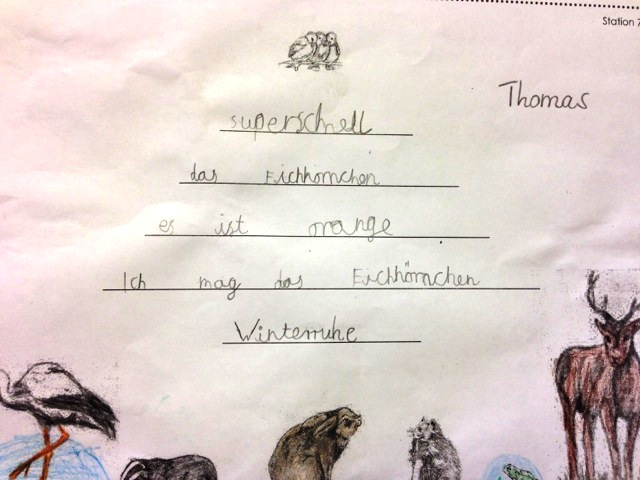 Station 7
Thomas
superschnell
das Eichhörnchen
es ist orange
Ich mag das Eichhörnchen
Winterruhe